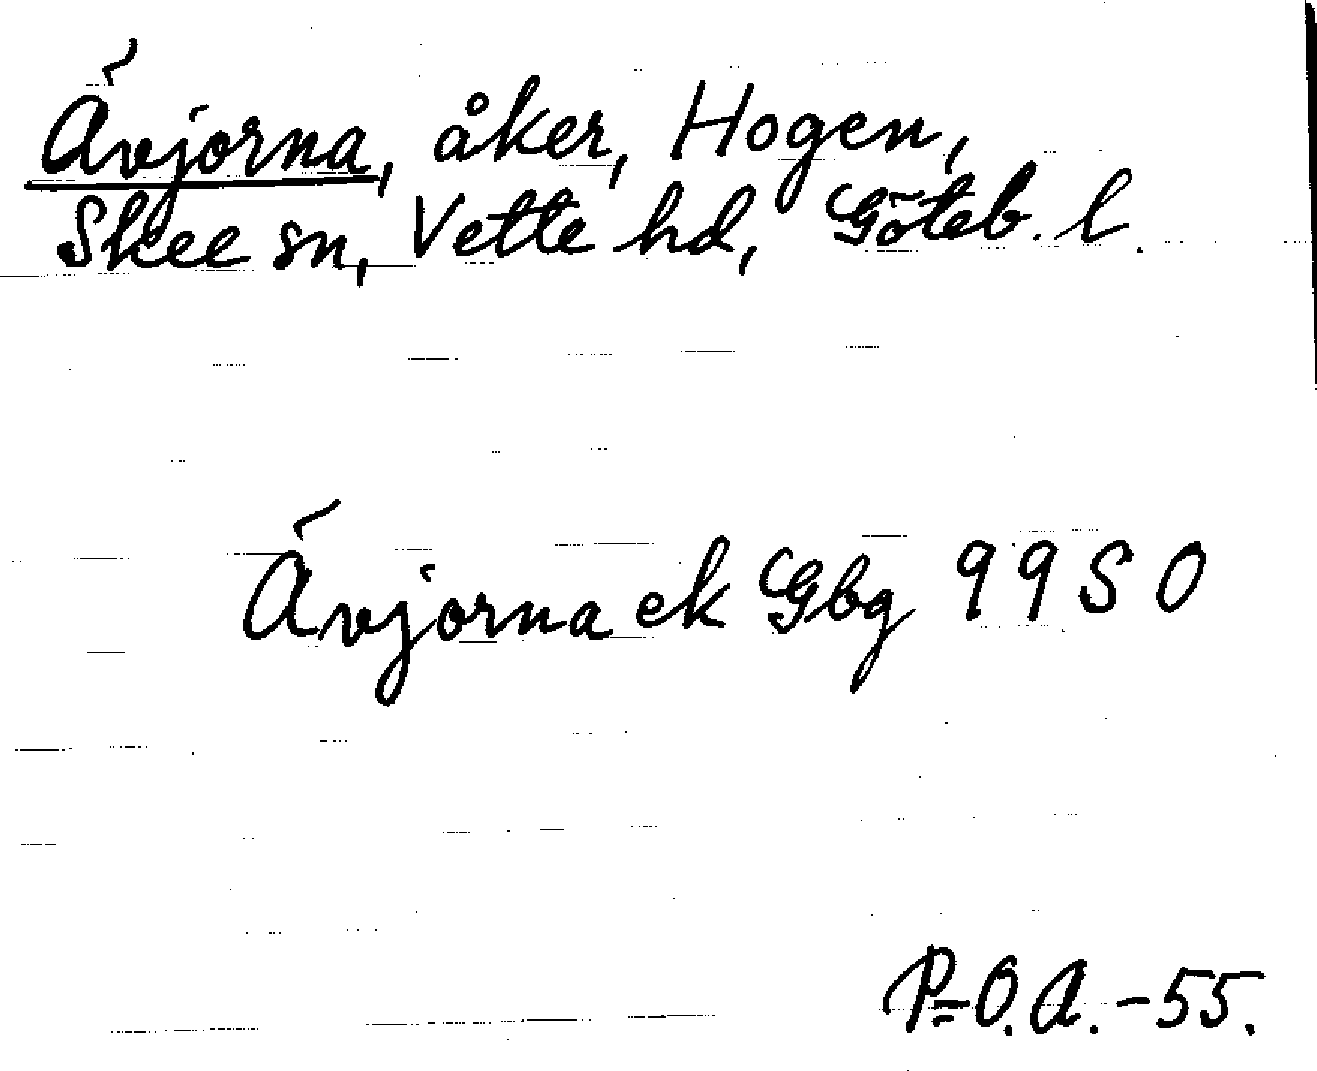 Ävjorna, åker, Hogen,
Skee sn, Vette hd, Göteb. l.
Ävjorna ek Gbg 99 S O
P-O. A. -55.